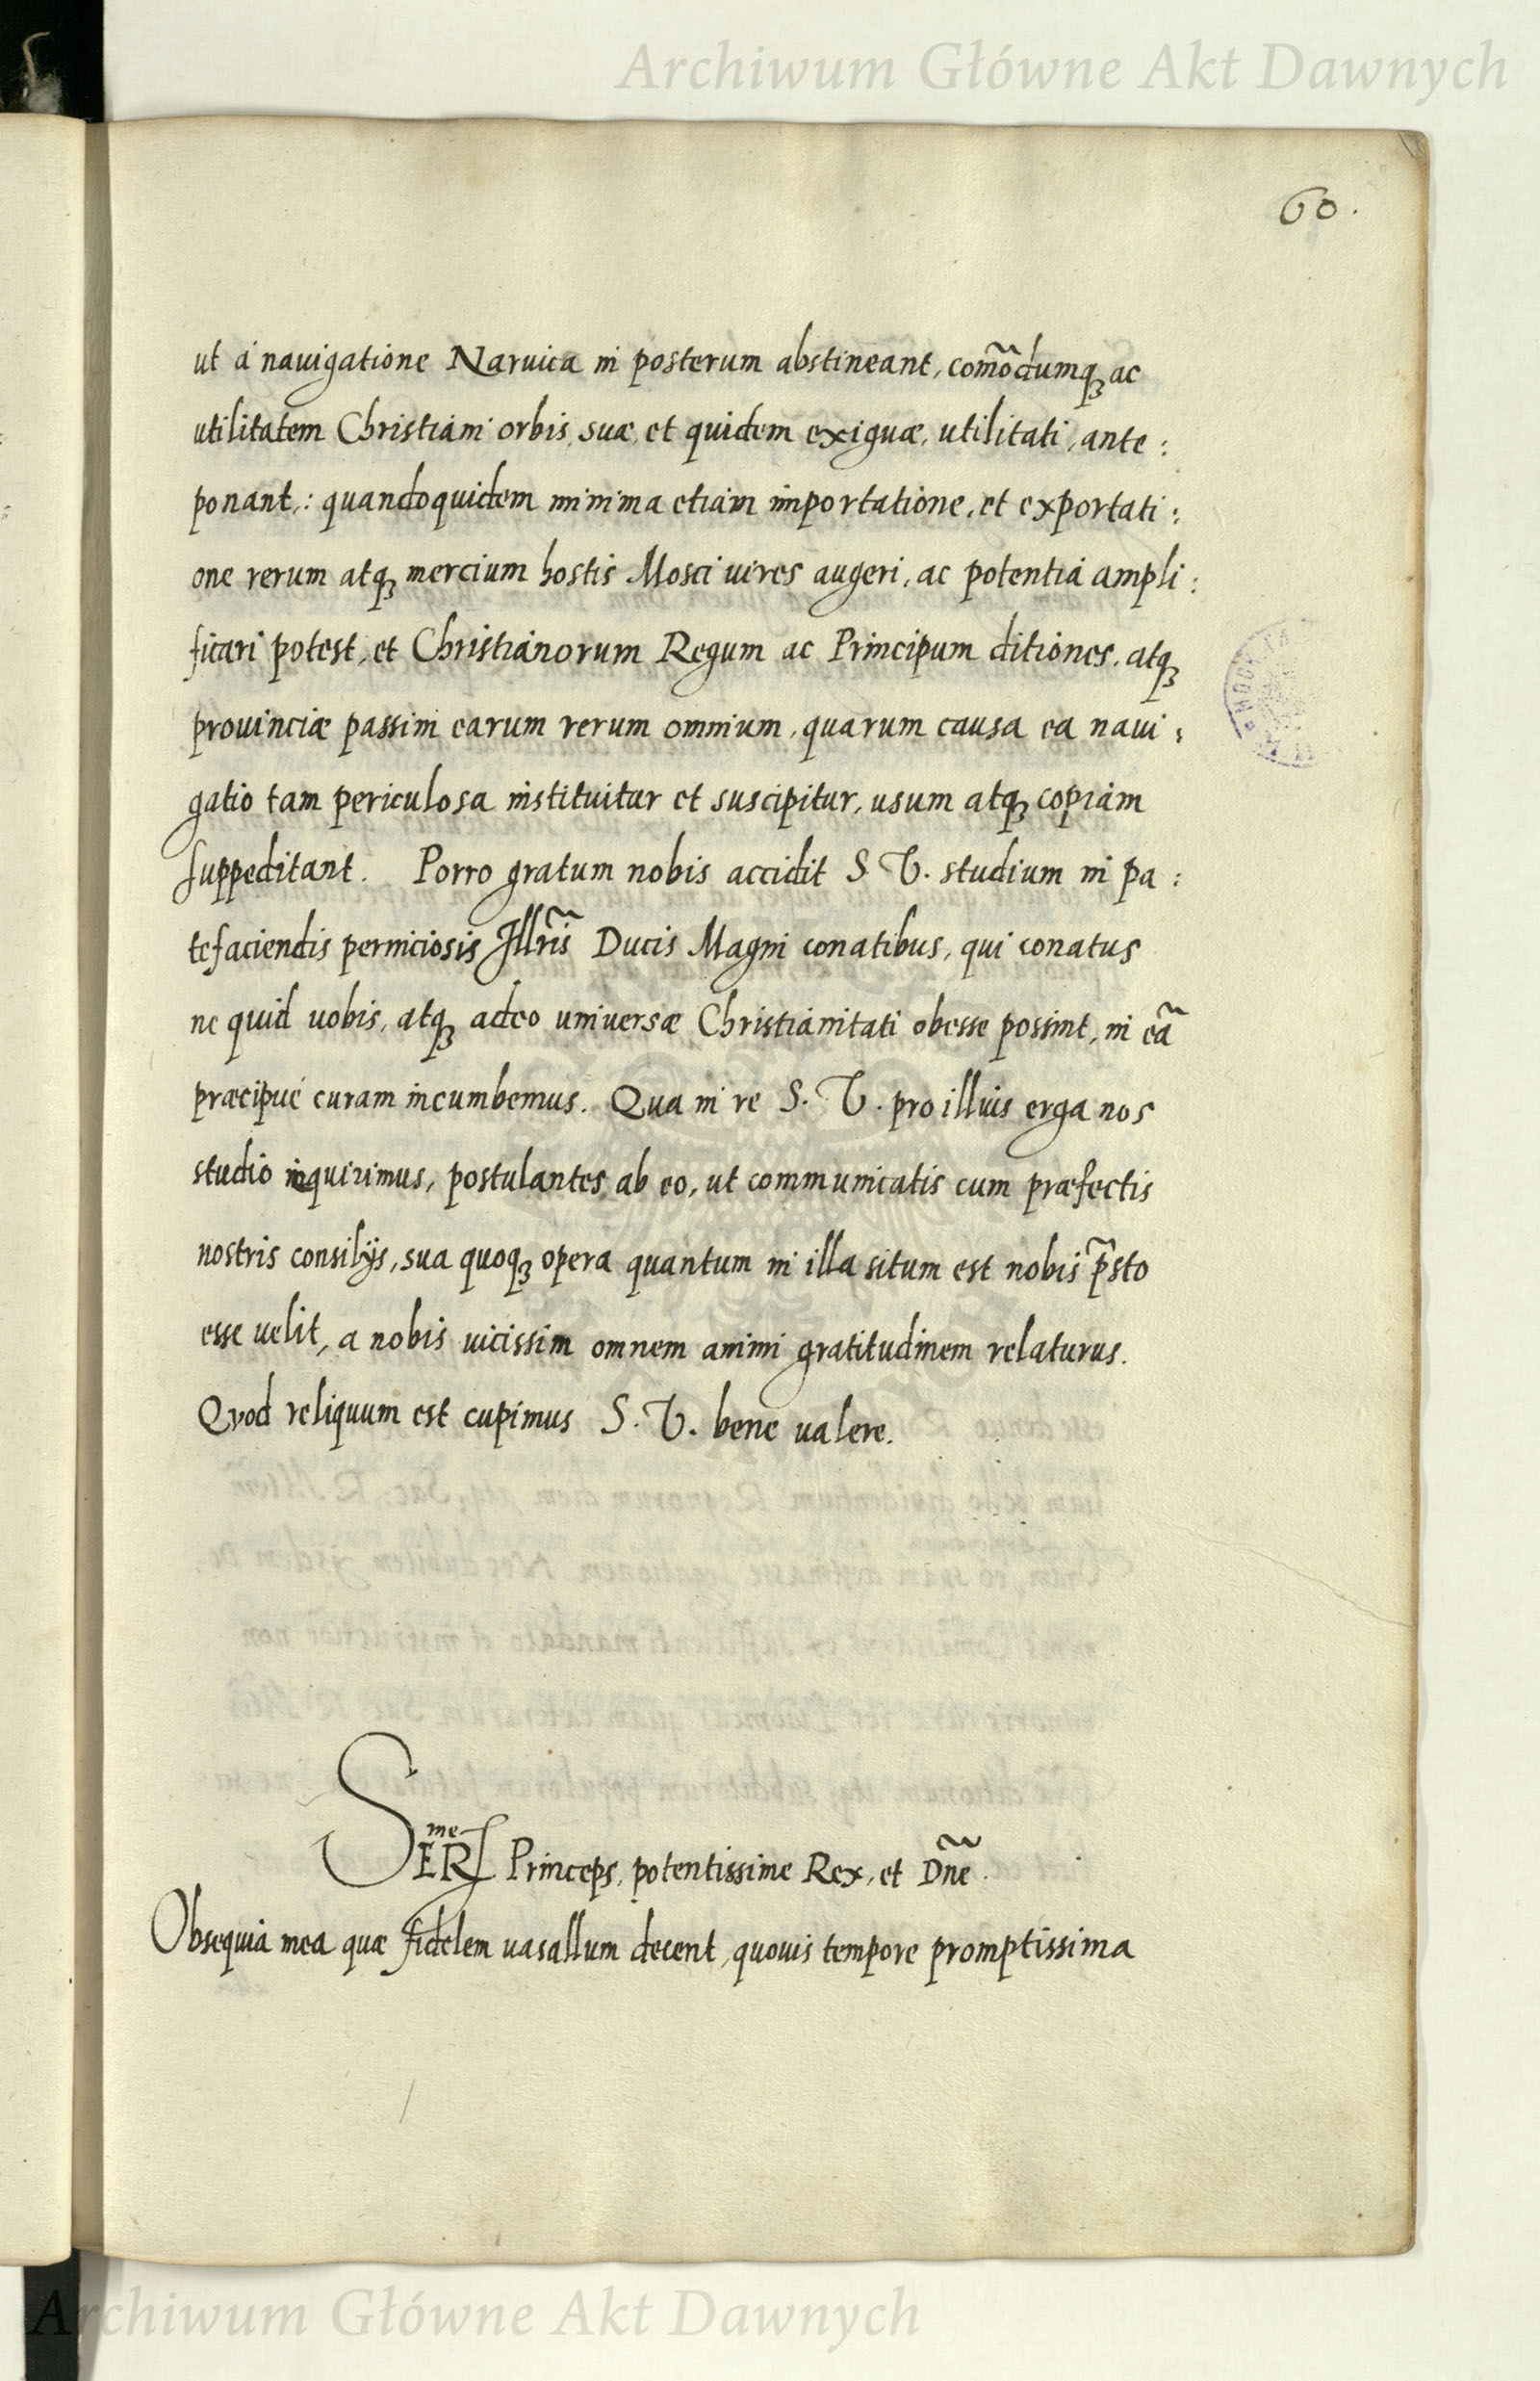 Archiwum Główne Akt Dawnych
60.
ut à nauigatione Naruica in posterum abstineant, com̃odumq́ꝫ ac
utilitatem Christiani orbis, suæ, et quidem exiguæ, utilitati, ante:
ponant: quandoquidem minima etiam importatione, et exportati:
one rerum atqꝫ mercium hostis Mosci uires augeri, ac potentia ampli:
ficari potest, et Christianorum Regum ac Principum ditiones, atqꝫ
prouinciæ passim earum rerum omnium, quarum causa ea naui:
gatio tam periculosa instituitur et suscipitur, usum atqꝫ copiam
suppeditant. Porro gratum nobis accidit S. V. studium in pa:
tefaciendis perniciosis Illr̃is Ducis Magni conatibus, qui conatus
ne quid uobis, atqꝫ adeo uniuersæ Christianitati obesse possint, in eã
præcipue curam incumbemus. Qua in re S. V. pro illius erga nos
studio inquirimus, postulantes ab eo, ut communicatis cum præfectis
nostris consilijs, sua quoqꝫ opera quantum in illa situm est nobis p̃sto
esse uelit, a nobis uicissim omnem animi gratitudinem relaturus.
Quod reliquum est cupimus S. V. bene ualere.
SERme Princeps, potentissime Rex, et Dñe.
Obsequia mea quæ fidelem uasallum decent, quouis tempore promptissima
Archiwum Główne Akt Dawnych